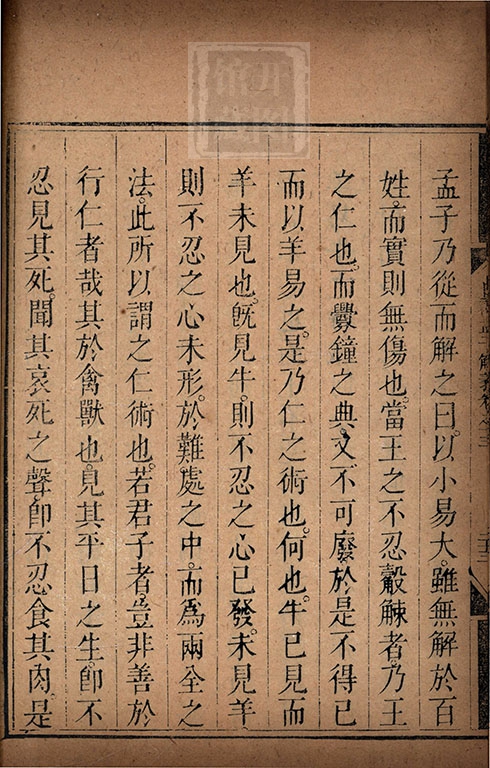 孟子乃從而解之曰。以小易大。雖無解於百
姓。而實則無傷也。當王之不忍觳觫者。乃王
之仁也。而釁鐘之典。又不可廢。於是不得已
而以羊易之。是乃仁之術也。何也。牛已見而
羊未見也。旣見牛。則不忍之心已發。未見羊
則不忍之心未形。於難處之中。而爲兩全之
法。此所以謂之仁術也。若君子者。豈非善於
行仁者哉。其於禽獸也。見其平日之生。卽不
忍見其死。聞其哀死之聲。卽不忍食其肉。是